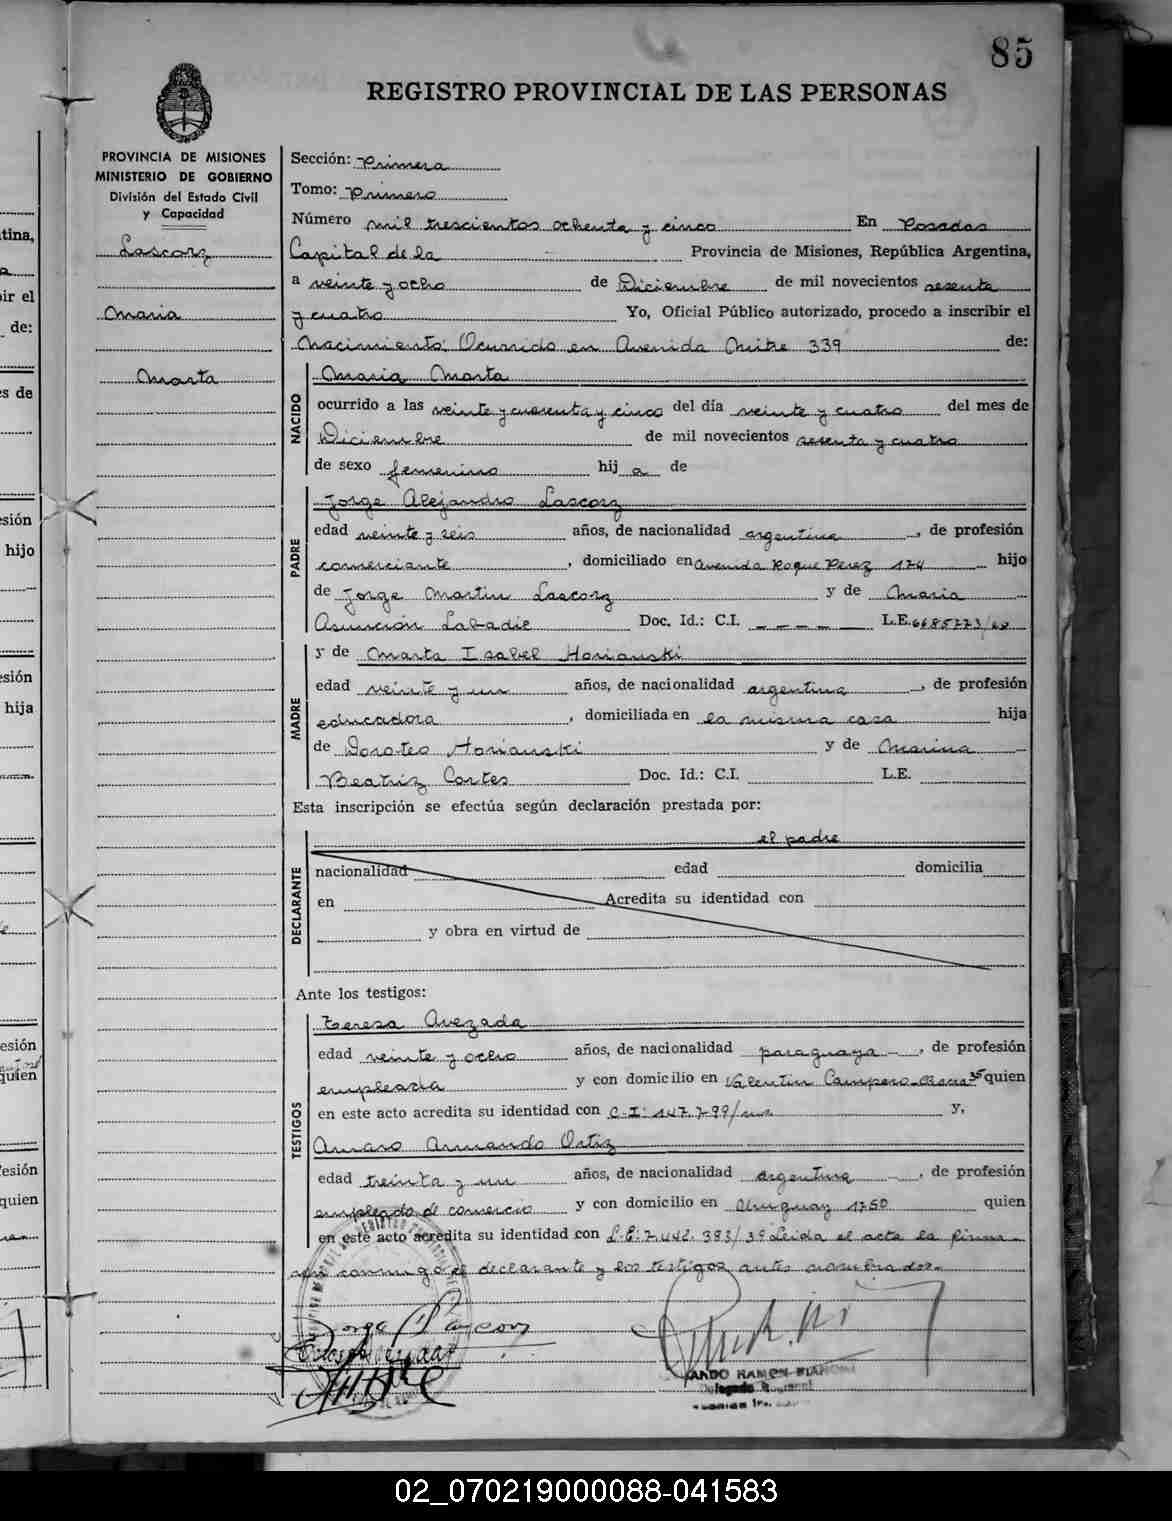 85
REGISTRO PROVINCIAL DE LAS PERSONAS
PROVINCIA DE MISIONES
MINISTERIO DE GOBIERNO
División del Estado Civil
y Capacidad
Lascorz
Maria
Marta
Sección: Primera
Tomo: Primero
Número mil trescientos ochenta y cinco En Posadas
Capital de la Provincia de Misiones, República Argentina,
a veinte y ocho de Diciembre de mil novecientos sesenta
y cuatro Yo, Oficial Público autorizado, procedo a inscribir el
Nacimiento: Ocurrido en Avenida Mitre 339 de:
NACIDO
Maria Marta
ocurrido a las veinte y cuarenta y cinco del día veinte y cuatro del mes de
Diciembre de mil novecientos sesenta y cuatro
de sexo femenino hij a de
PADRE
Jorge Alejandro Lascorz
edad veinte y seis años, de nacionalidad argentina, de profesión
comerciante, domiciliado en Avenida Roque Perez 174 hijo
de Jorge Martin Lascorz y de Maria
Asunción Labadie Doc. Id.: C.I. _ _ _ _ L.E.
MADRE
y de Marta Isabel Horianski
edad veinte y un años, de nacionalidad argentina, de profesión
educadora, domiciliada en la misma casa hija
de Doroteo Horianski y de Marina
Beatriz Cortes Doc. Id.: C.I. L.E.
Esta inscripción se efectúa según declaración prestada por:
DECLARANTE
el padre
nacionalidad edad domicilia
en Acredita su identidad con
y obra en virtud de
Ante los testigos:
TESTIGOS
Teresa Avezada
edad veinte y ocho años, de nacionalidad paraguaya, de profesión
empleada y con domicilio en Valentin Campero quien
en este acto acredita su identidad con C-I: 147.799/ y,
Amaro Armando Ortiz
edad treinta y un años, de nacionalidad argentina, de profesión
empleado de comercio y con domicilio en Uruguay 1750 quien
en este acto acredita su identidad con L.E: 7.442.383/39 Leida el acta la firma
conmigo el declarante y los testigos antes nombrados.
Jorge Lascorz
02_070219000088-041583